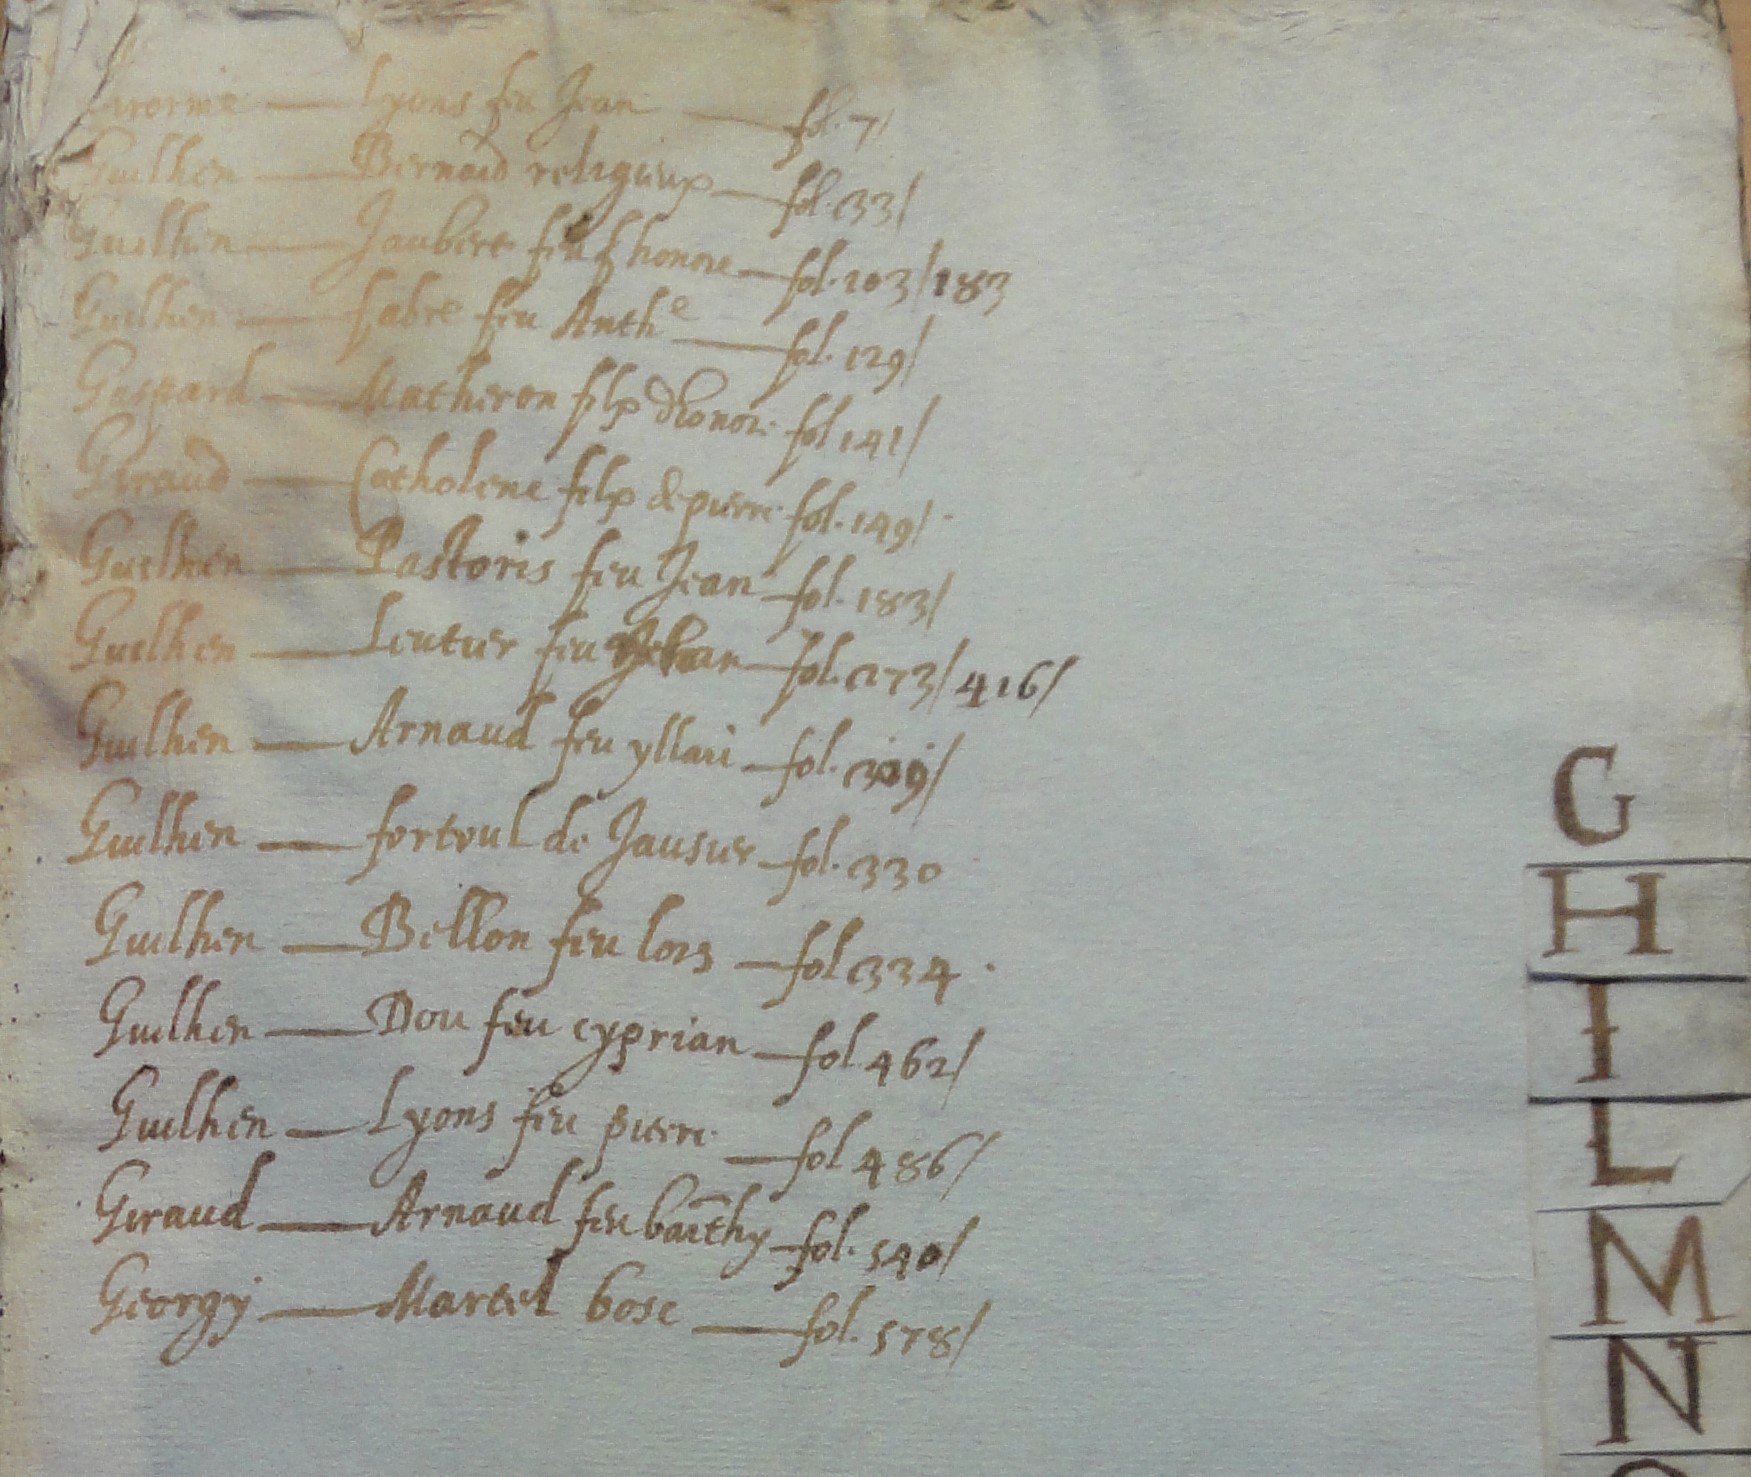 Lyons feu Jean fol. 7/
Guilhen Bernard religieux fol. 33/
Guilhen Jaubert feu honore fol. 103/183
Guilhen fabre feu Anth^e fol. 129/
Gaspard Matheron filx dhonore fol 141/
Giraud Catholene filx de pierre fol. 149/
Guilhen Pastoris feu Jean fol. 183/
Guilhen Leutier feu Jehan fol. 273/ 416/
Guilhen Arnaud feu yllari fol. 309/
Guilhen fortoul de Jausier fol. 330
Guilhen Bellon feu lois fol 334
Guilhen Dou feu cyprian fol. 462/
Guilhen Lyons feu pierre fol 486/
Giraud Arnaud feu barthy fol. 540/
Georgy Martel bosc fol. 578/
G
H
I
L
M
N